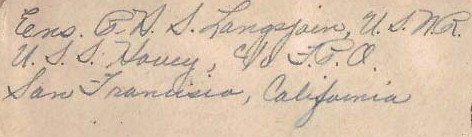 Ens. R. H. S. Langsjoin, U.S.N.R.
U.S.S. Hovey, c/o F.P.O.
San Francisco, California